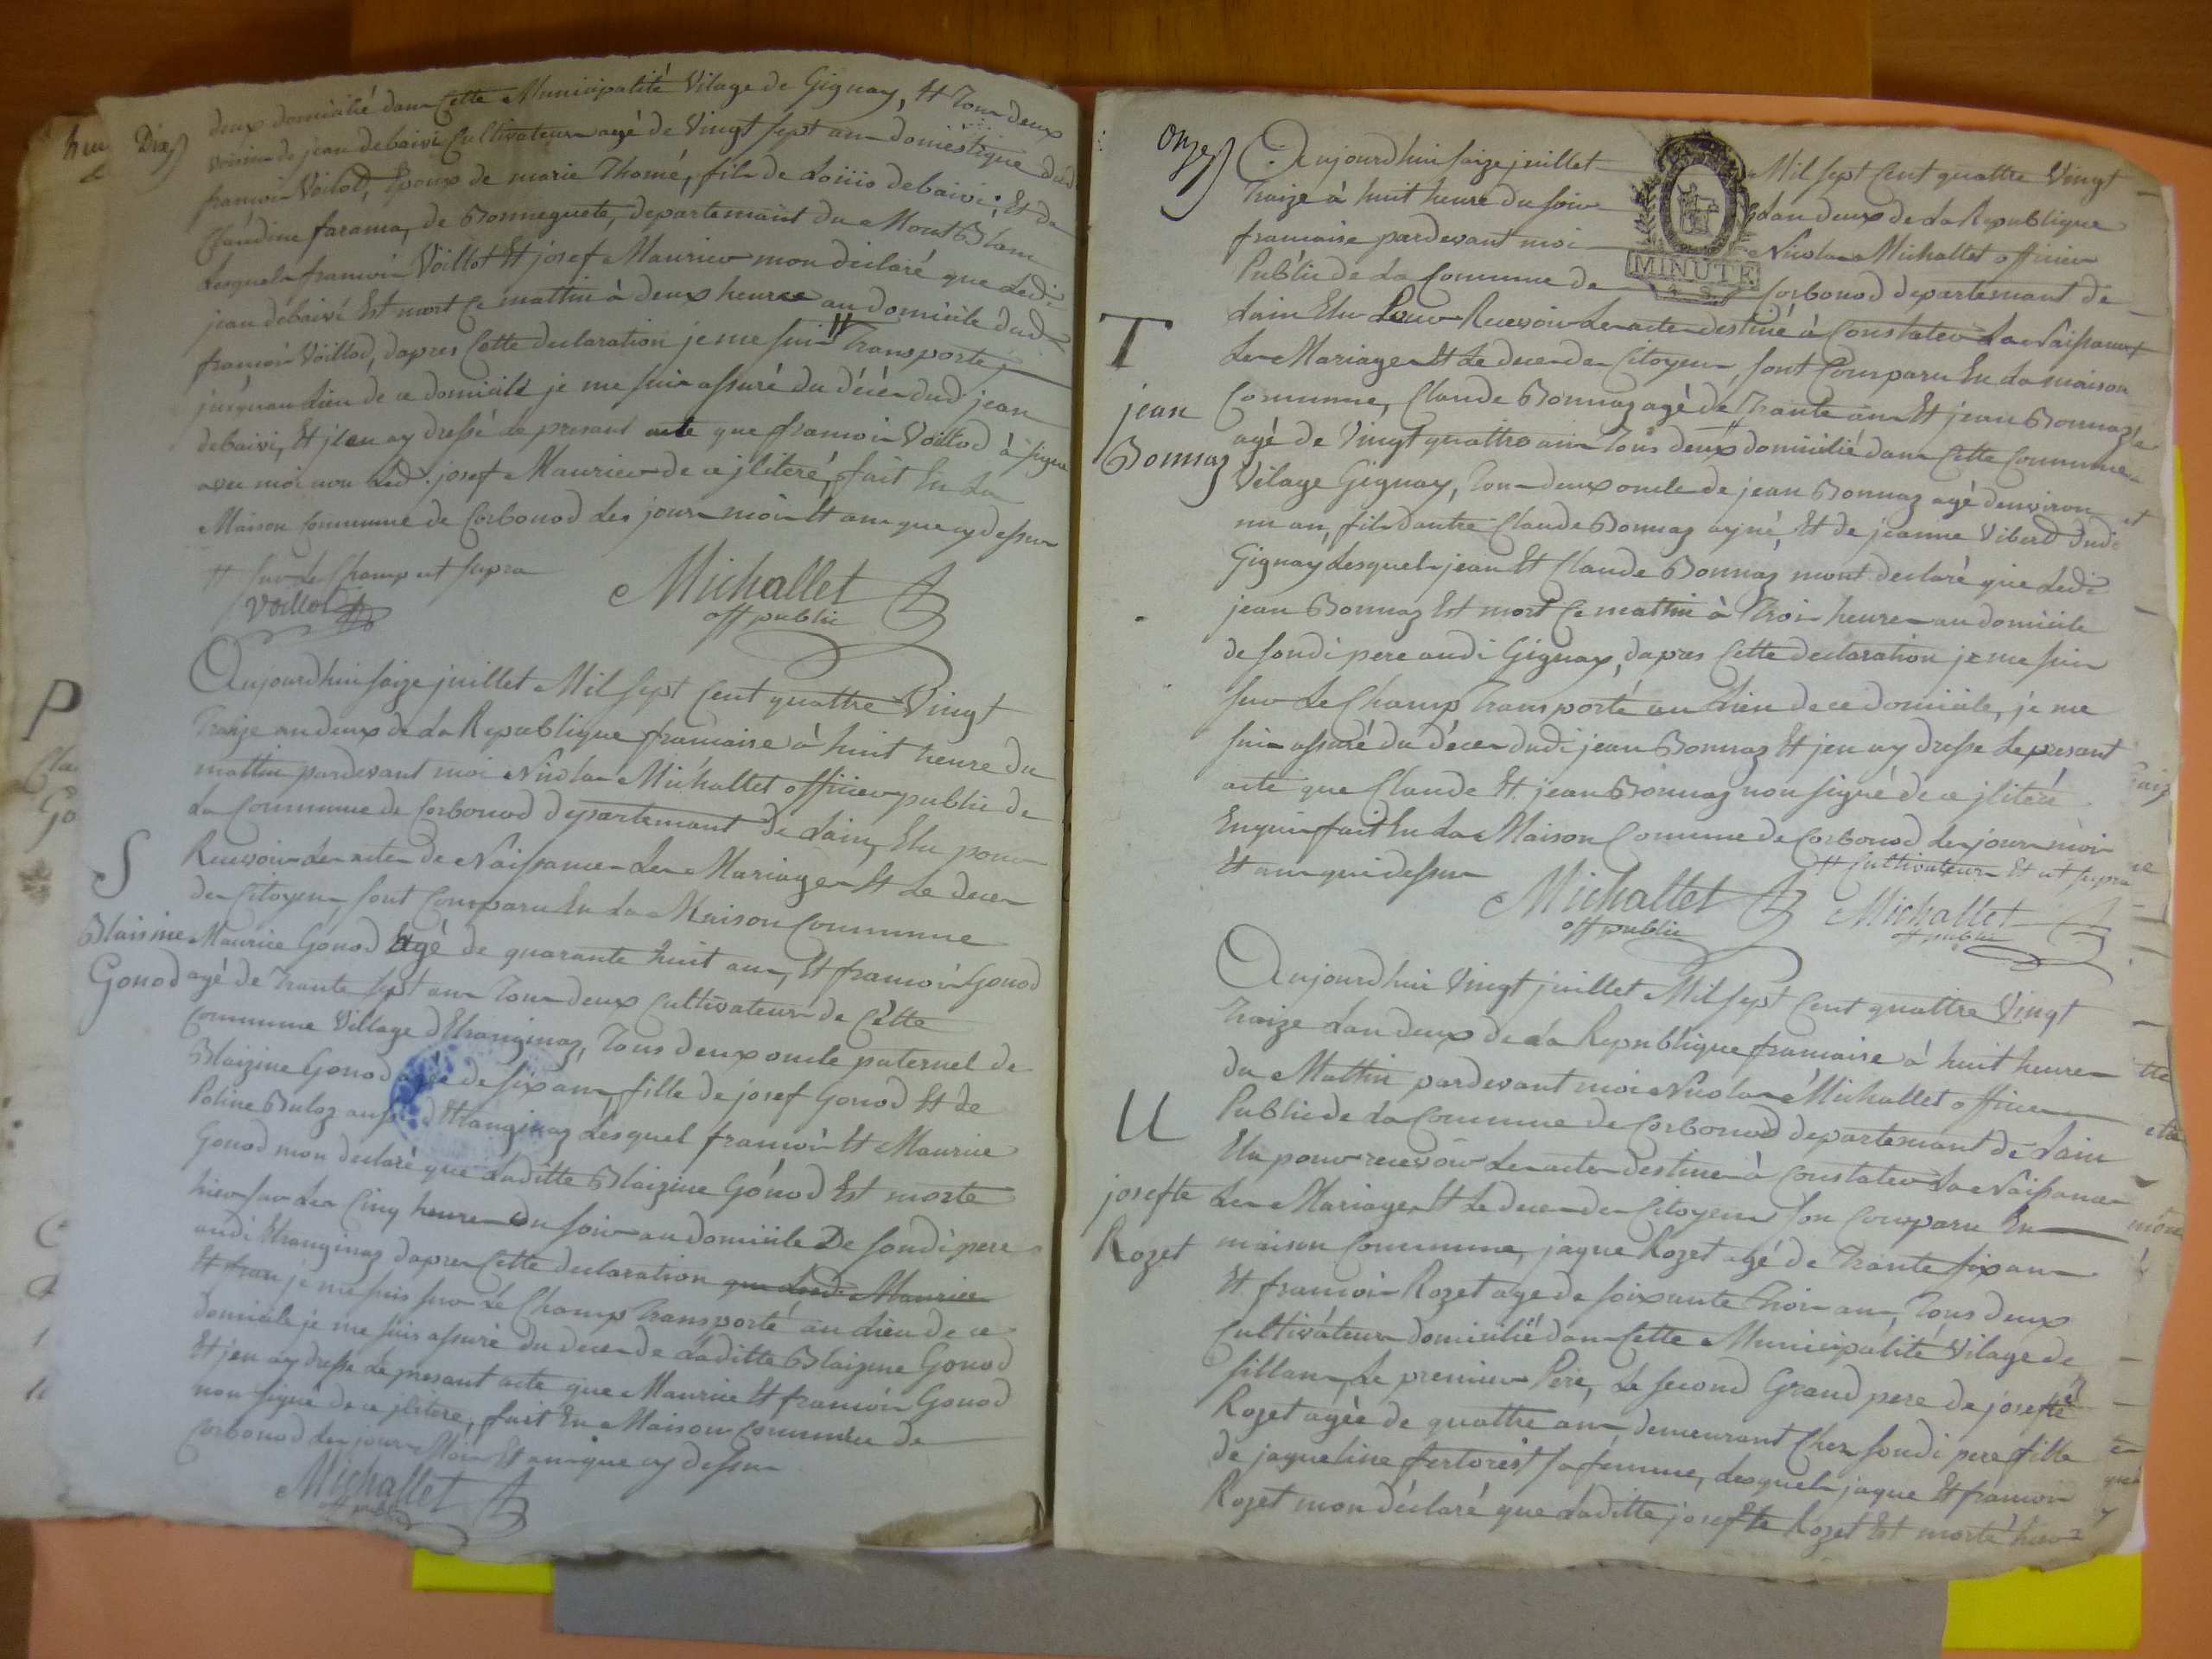 Dix
deux domicilié dans Cette Municipalité Vilage de Gignay, Et Tous deux
voisin de jean debaivi Cultivateur agé de Vingt sept ans domestique dud
françois Voillod, Epoux de marie Thomé, fils de Loüis debaivi; Et de
Claudine farama, de Bonneguete, departemant du Mont Blanc
Lesquels françois Voillot Et josef Maurier mon déclaré que Ledi
jean debaivi Est mort Ce mattin à deux heures au domicile dud
françois Voillod, dapres Cette declaration je me suis // Transporté
jusquau Lieu de ce domicile je me suis assuré du décès dud jean
debaivi, Et j'en ay dressé Le presant acte que françois Voillod à signé
avec moi non Led. josef Maurier de ce jliteré, fait En La
Maison Commune de Corbonod Les jour mois Et an que cy dessus
// sur Le Champ ut supra
Voillod
Michallet
off public
Aujourdhui saize juillet Mil sept Cent quattre Vingt
Traize an deux de La Republique française à huit heure du
mattin pardevant moi Nicolas Michallet officier public de
La Commune de Corbonod departemant de Lain, Elu pour
Recevoir Les actes de Naissances Les Mariages Et Le deces
des Citoyens sont Comparu En La Maison Commune
S
Blaisine
Gonod
Maurice Gonod agé de quarante huit ans, Et françois Gonod
agé de Trante sept ans Tous deux Cultivateurs de Cette
Commune Village dEtranginaz, Tous deux oncle paternel de
Blaizine Gonod agée de six ans, fille de josef Gonod Et de
Poline Buloz aussi dEtranginaz Lesquel françois Et Maurice
Gonod mon declaré que Laditte Blaizine Gonod Est morte
hier sur Les Cinq heures du soir au domicile De sondi pere
audi Etranginaz dapres Cette declaration que Lesd. Maurice
Et fran je me suis sur Le Champ Transporté au Lieu de ce
domicile je me suis assuré du deces de Laditte Blaizine Gonod
Et jen ay dresse Le presant acte que Maurice Et françois Gonod
non signé de ce jliteré, fait En Maison Commune de
Corbonod Les jour Mois Et an que cy dessus
Michallet
off public
Onze
Aujourdhui saize juillet Mil sept Cent quattre Vingt
Traize à huit heure du soir Lan deux de La Republique
française pardevant moi Nicolas Michallet officier
MINUTE
Public de La Commune de Corbonod departemant de
Lain Elu Pour Recevoir Les actes destiné à Constater La Naissance
T
jean
Bonnaz
Les Mariages Et Le deces des Citoyens, sont Comparu En La maison
Commune, Claude Bonnaz agé de Trante ans Et jean Bonnaz
agé de Vingt quattre ans Tous deux // domicilié dans Cette Commune
Vilage Gignay, Tous deux oncle de jean Bonnaz agé denviron
un an, fils dautre Claude Bonnaz ayné, Et de jeanne Viberd dudi
Gignay Lesquels jean Et Claude Bonnaz mont declaré que Ledi
jean Bonnaz Est mort Ce mattin à Trois heures au domicile
de sondi pere audi Gignay, dapres Cette declaration je me suis
sur Le Champ Transporté au Lieu de ce domicile, je me
suis assuré du déces dudi jean Bonnaz Et jen ay dresse Le presant
acte que Claude Et jean Bonnaz non signé de ce jliteré
Enquis fait En La Maison Comune de Corbonod Les jour mois
Et an que dessus // Cultivateurs Et ut supra
Michallet
off public
Michallet
off public
Aujourdhui Vingt juillet Mil sept Cent quattre Vingt
Traize Lan deux de La Republique francaise à huit heures
du Mattin pardevant moi Nicolas Michallet officier
Public de La Commune de Corbonod departemant de Lain
Elu pour recevoir Les actes destiné à Constater La Naissance
U
josefte
Rozet
Les Mariages Et Le deces des Citoyens son Comparu En
maison Commune, jaque Rozet agé de Trante six ans
Et françois Rozet age de soixante Trois ans, Tous deux
Cultivateurs domicilié dans Cette Municipalité Vilage de
sillans, Le premier Pere, Le second Grand pere de josefte
Rozet agée de quattre ans demeurant Chez sondi pere fille
de jaqueline fertorest sa femme, Lesquels jaque Et françois
Rozet mon déclaré que Laditte josefte Rozet Est morte hier